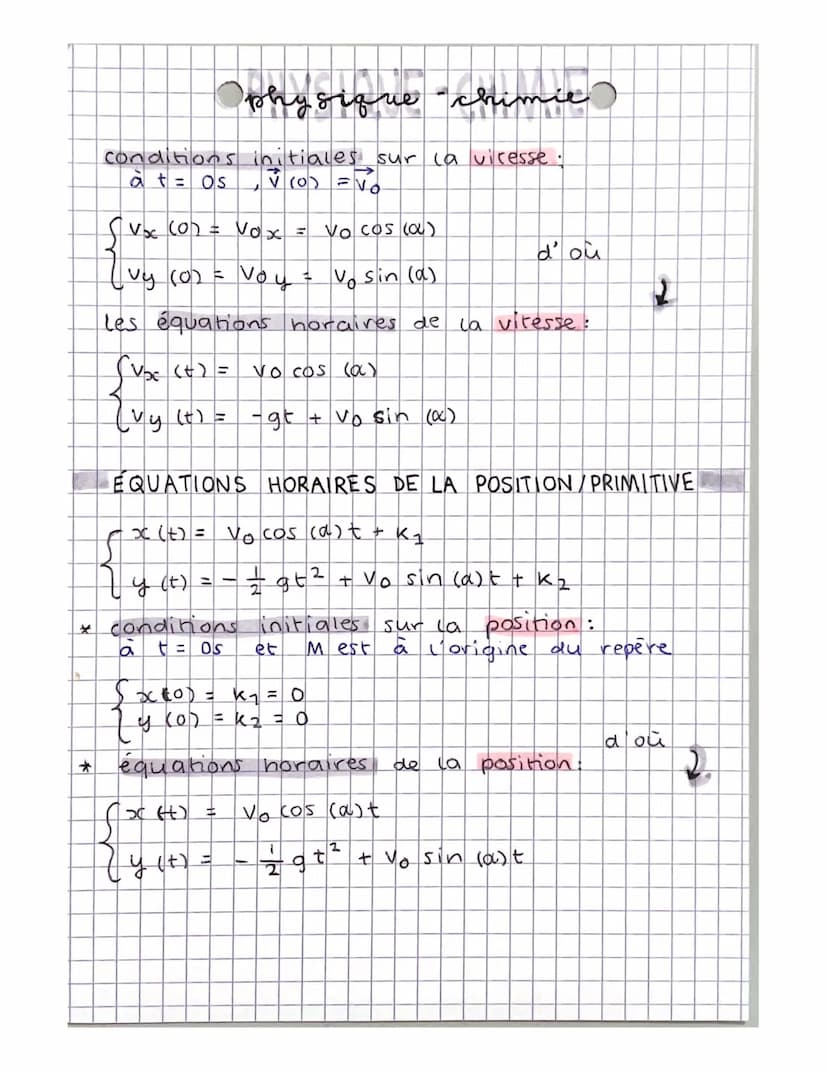 physique-chimie
conditions initiales sur la vitesse :
à t = 0s , v⃗ (0) = v⃗₀
{ vₓ (0) = v₀x = v₀ cos (α)
d'où
{ vy (0) = v₀y = v₀ sin (α)
les équations horaires de la vitesse :
{ vₓ (t) = v₀ cos (α)
{ vy (t) = -gt + v₀ sin (α)
ÉQUATIONS HORAIRES DE LA POSITION/PRIMITIVE
{ x (t) = v₀ cos (α) t + k₁
{ y (t) = - ½ gt² + v₀ sin (α) t + k₂
* conditions initiales sur la position :
à t = 0s et M est à l'origine du repère
{ x(0) = k₁ = 0
{ y (0) = k₂ = 0
d'où
* équations horaires de la position :
{ x (t) = v₀ cos (α) t
{ y (t) = - ½ gt² + v₀ sin (α) t